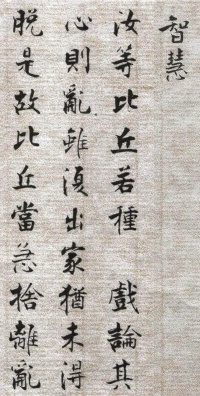 智慧
汝等比丘若種 戲論其
心則亂雖須出家猶未得
脱是故比丘當急捨離亂